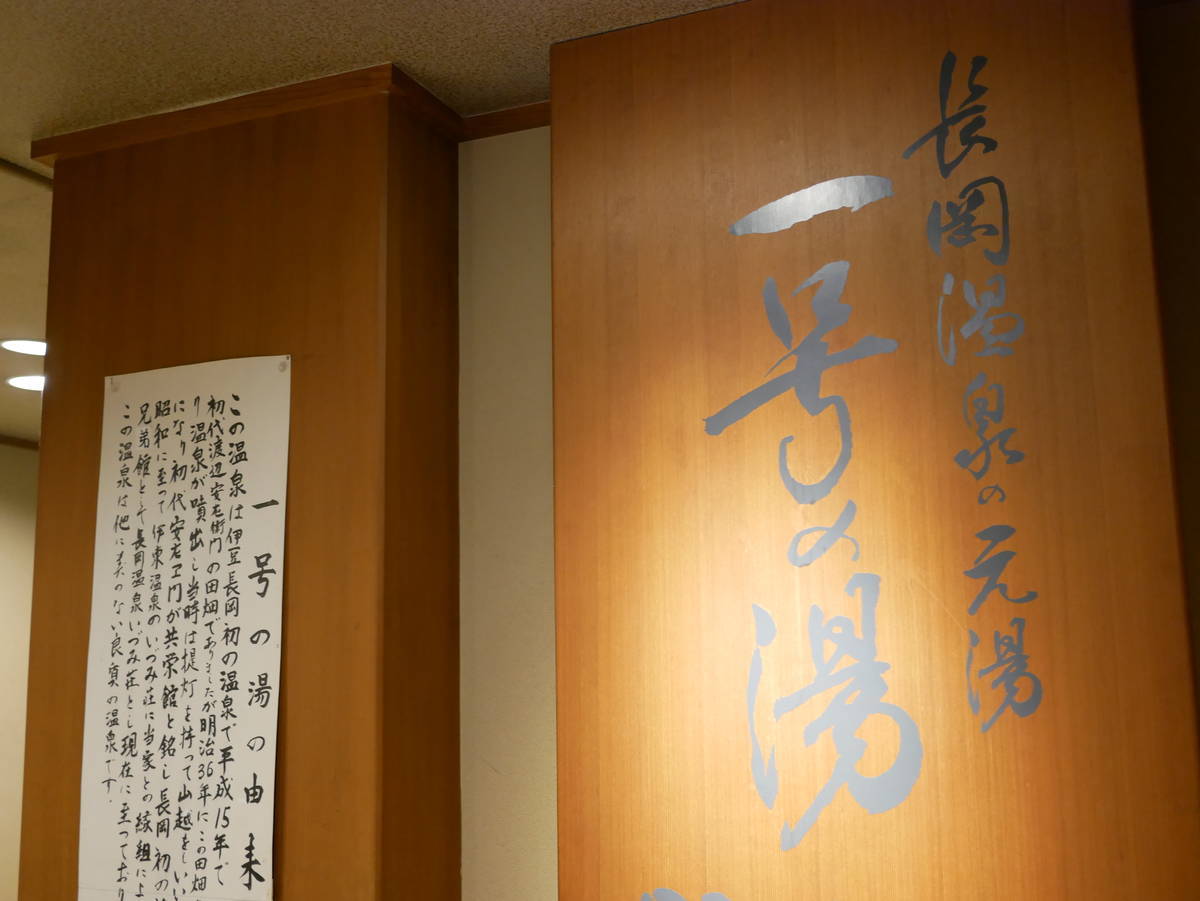 長岡温泉の元湯
一号の湯
一号の湯の由来
この温泉は伊豆長岡初の温泉で平成15年で
初代渡辺安右衛門の田畑でありましたが明治36年にこの田畑
り温泉が噴出し当時は提灯を持って山越をしいい
になり初代安右ヱ門が共栄館と銘し長岡初の
昭和に至って伊東温泉のいづみ荘に当家との縁組によ
兄弟館として長岡温泉いづみ荘とし現在に至っており
この温泉は他に類のない良質の温泉です.